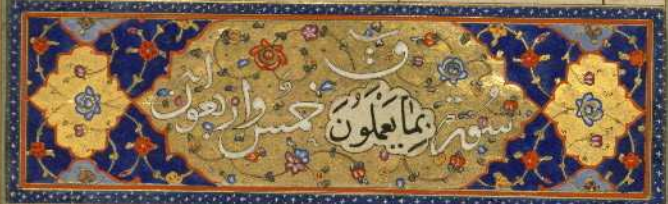 سورة ق خمس واربعون اية
بِمَا يَعْمَلُونَ